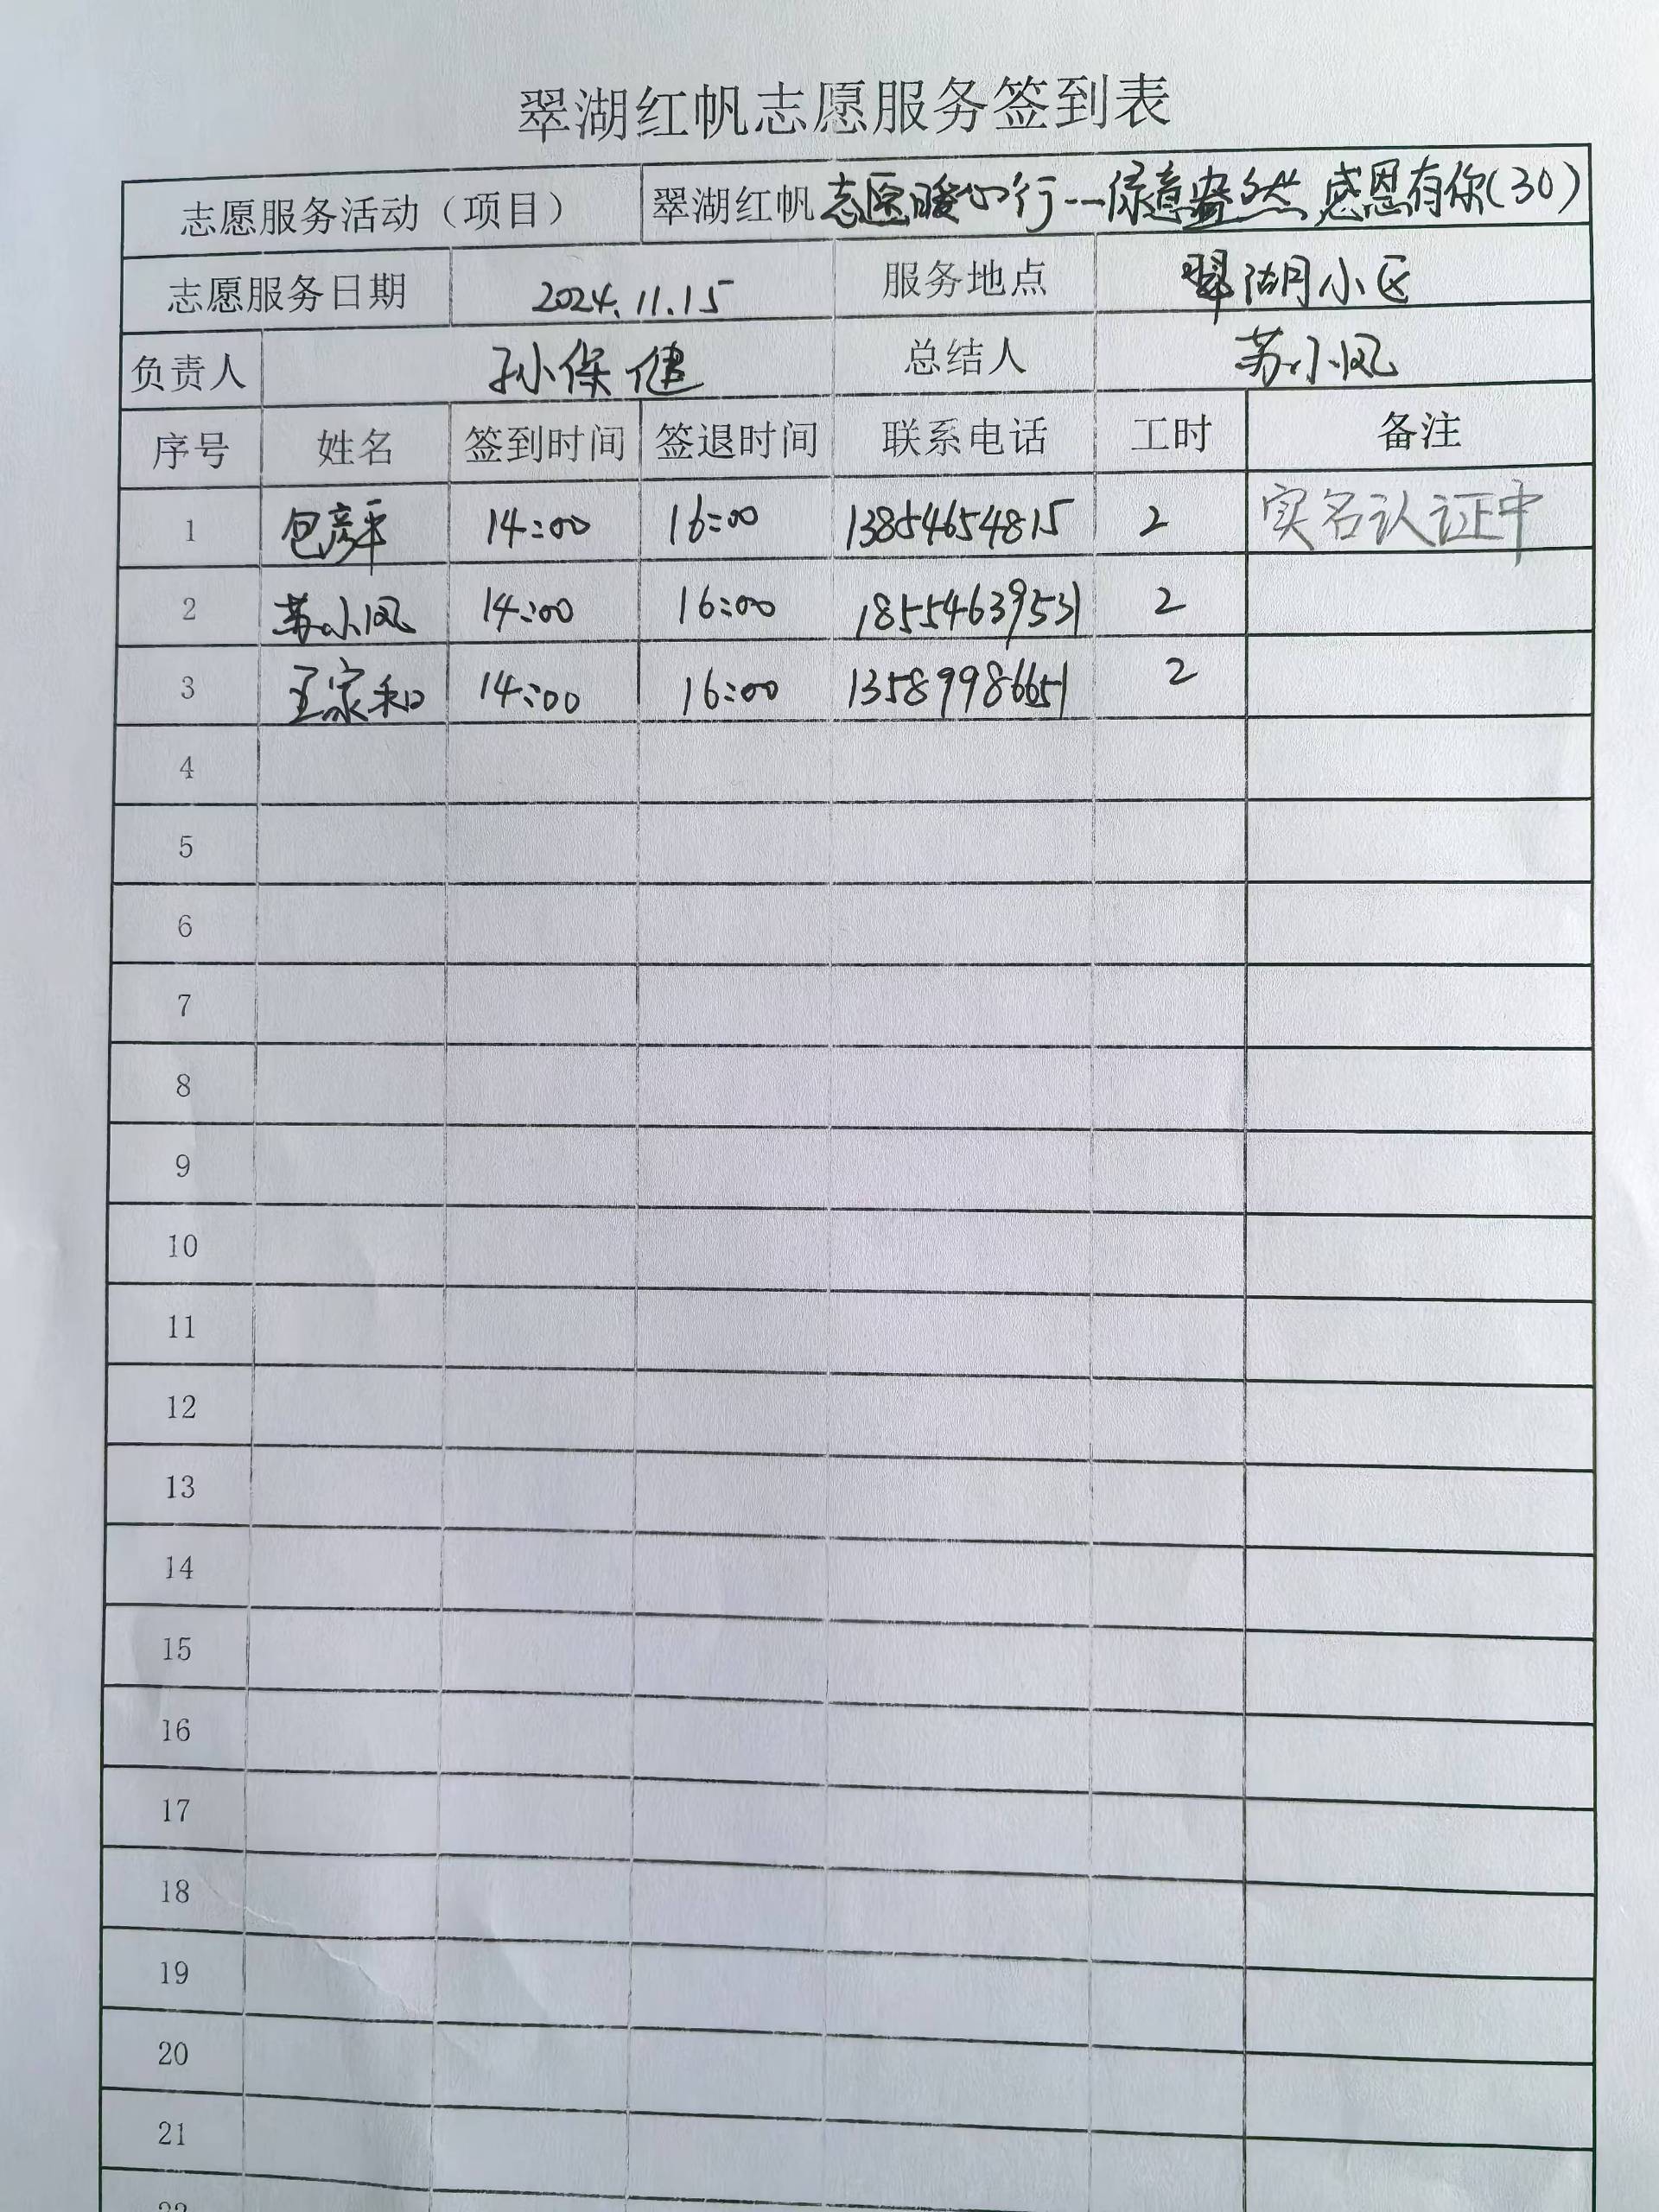 翠湖红帆志愿服务签到表
志愿服务活动（项目） 翠湖红帆 志愿暖心行--绿意盎然 感恩有你(30)
志愿服务日期 2024.11.15 服务地点 翠湖小区
负责人 孙保健 总结人 苏小风
序号 姓名 签到时间 签退时间 联系电话 工时 备注
1 包彦平 14:00 16:00 13854654815 2 实名认证中
2 苏小风 14:00 16:00 18554639531 2
3 王家和 14:00 16:00 13589986651 2
4
5
6
7
8
9
10
11
12
13
14
15
16
17
18
19
20
21
22